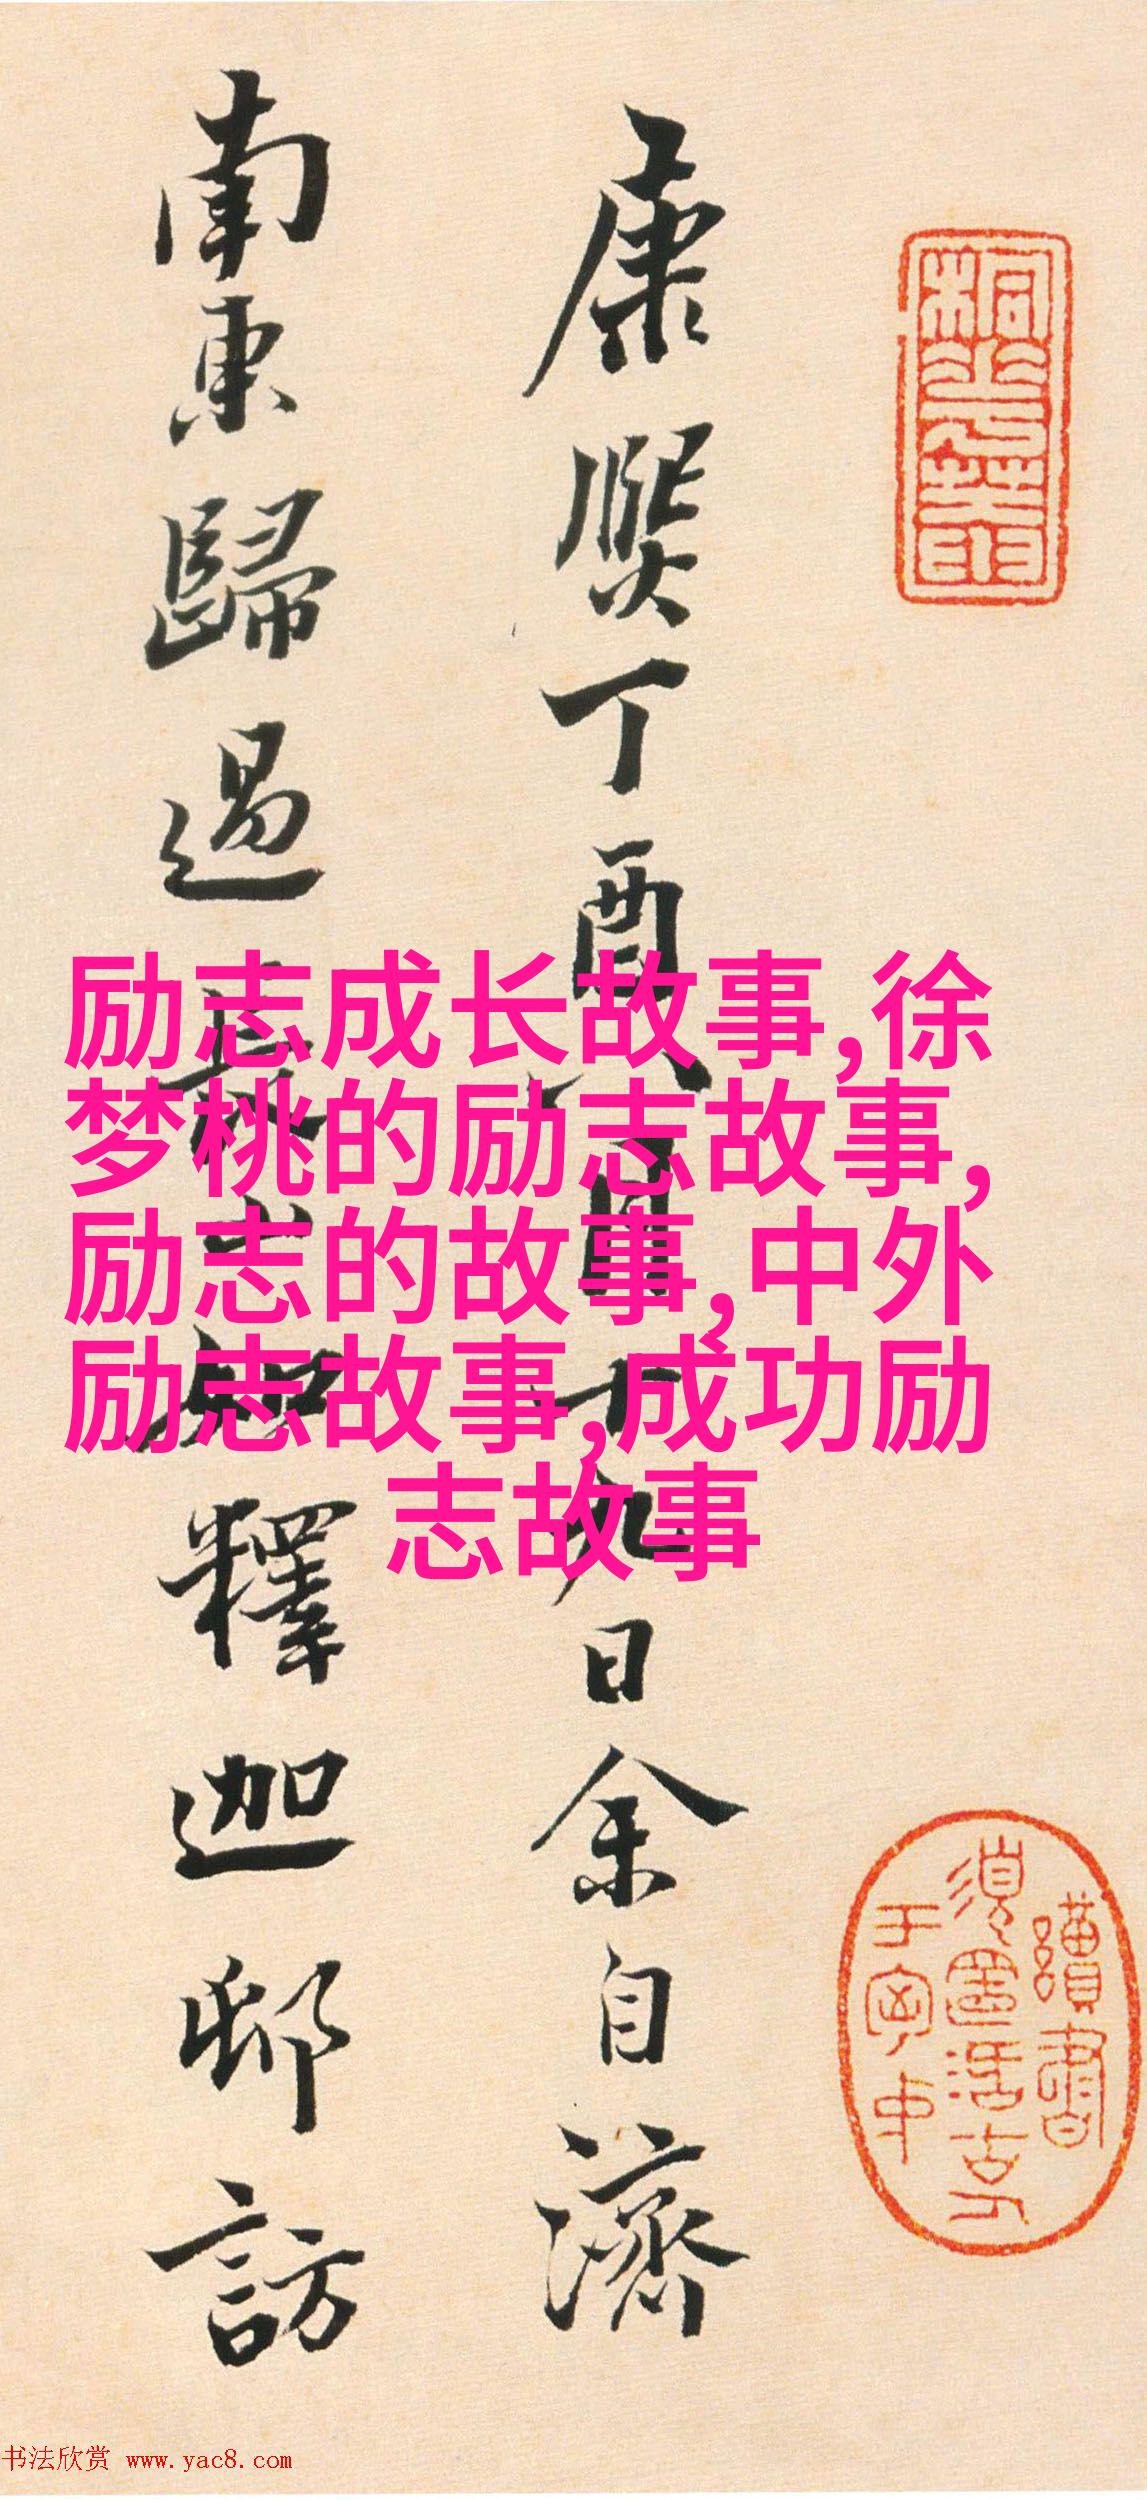 康熙丁酉八月十九日余自濟
南東歸過長山知釋迦邨訪
励志成长故事,徐
梦桃的励志故事,
励志的故事,中外
励志故事,成功励
志故事
书法欣赏 www.yac8.com